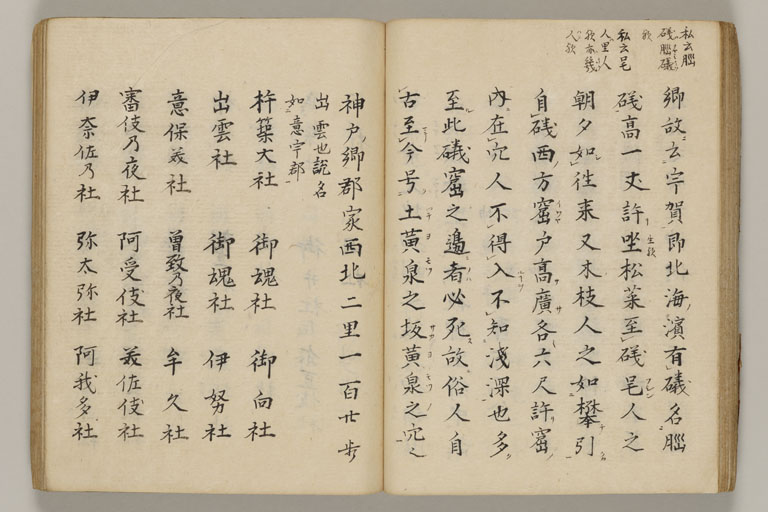 私云腦
礒腦礒
歟
私云邑
人里人
歟本幾
人歟
郷故云宇賀即北海濱有礒名腦
礒高一丈許坐松葉至礒邑人之
生歟
朝夕如往来又木枝人之如攀引
自礒西方窟戸高廣各六尺許窟
内在穴人不得入不知浅深也多
至此礒窟之邉者必死故俗人自
古至今号土黄泉之坂黄泉之穴〻
神戸郷郡家西北二里一百廿歩
出雲也説名
如意宇郡
杵築大社 御魂社 御向社
出雲社 御魂社 伊努社
意保美社 曽致乃夜社 牟久社
審伎乃夜社 阿受伎社 美佐伎社
伊奈佐乃社 弥太弥社 阿我多社